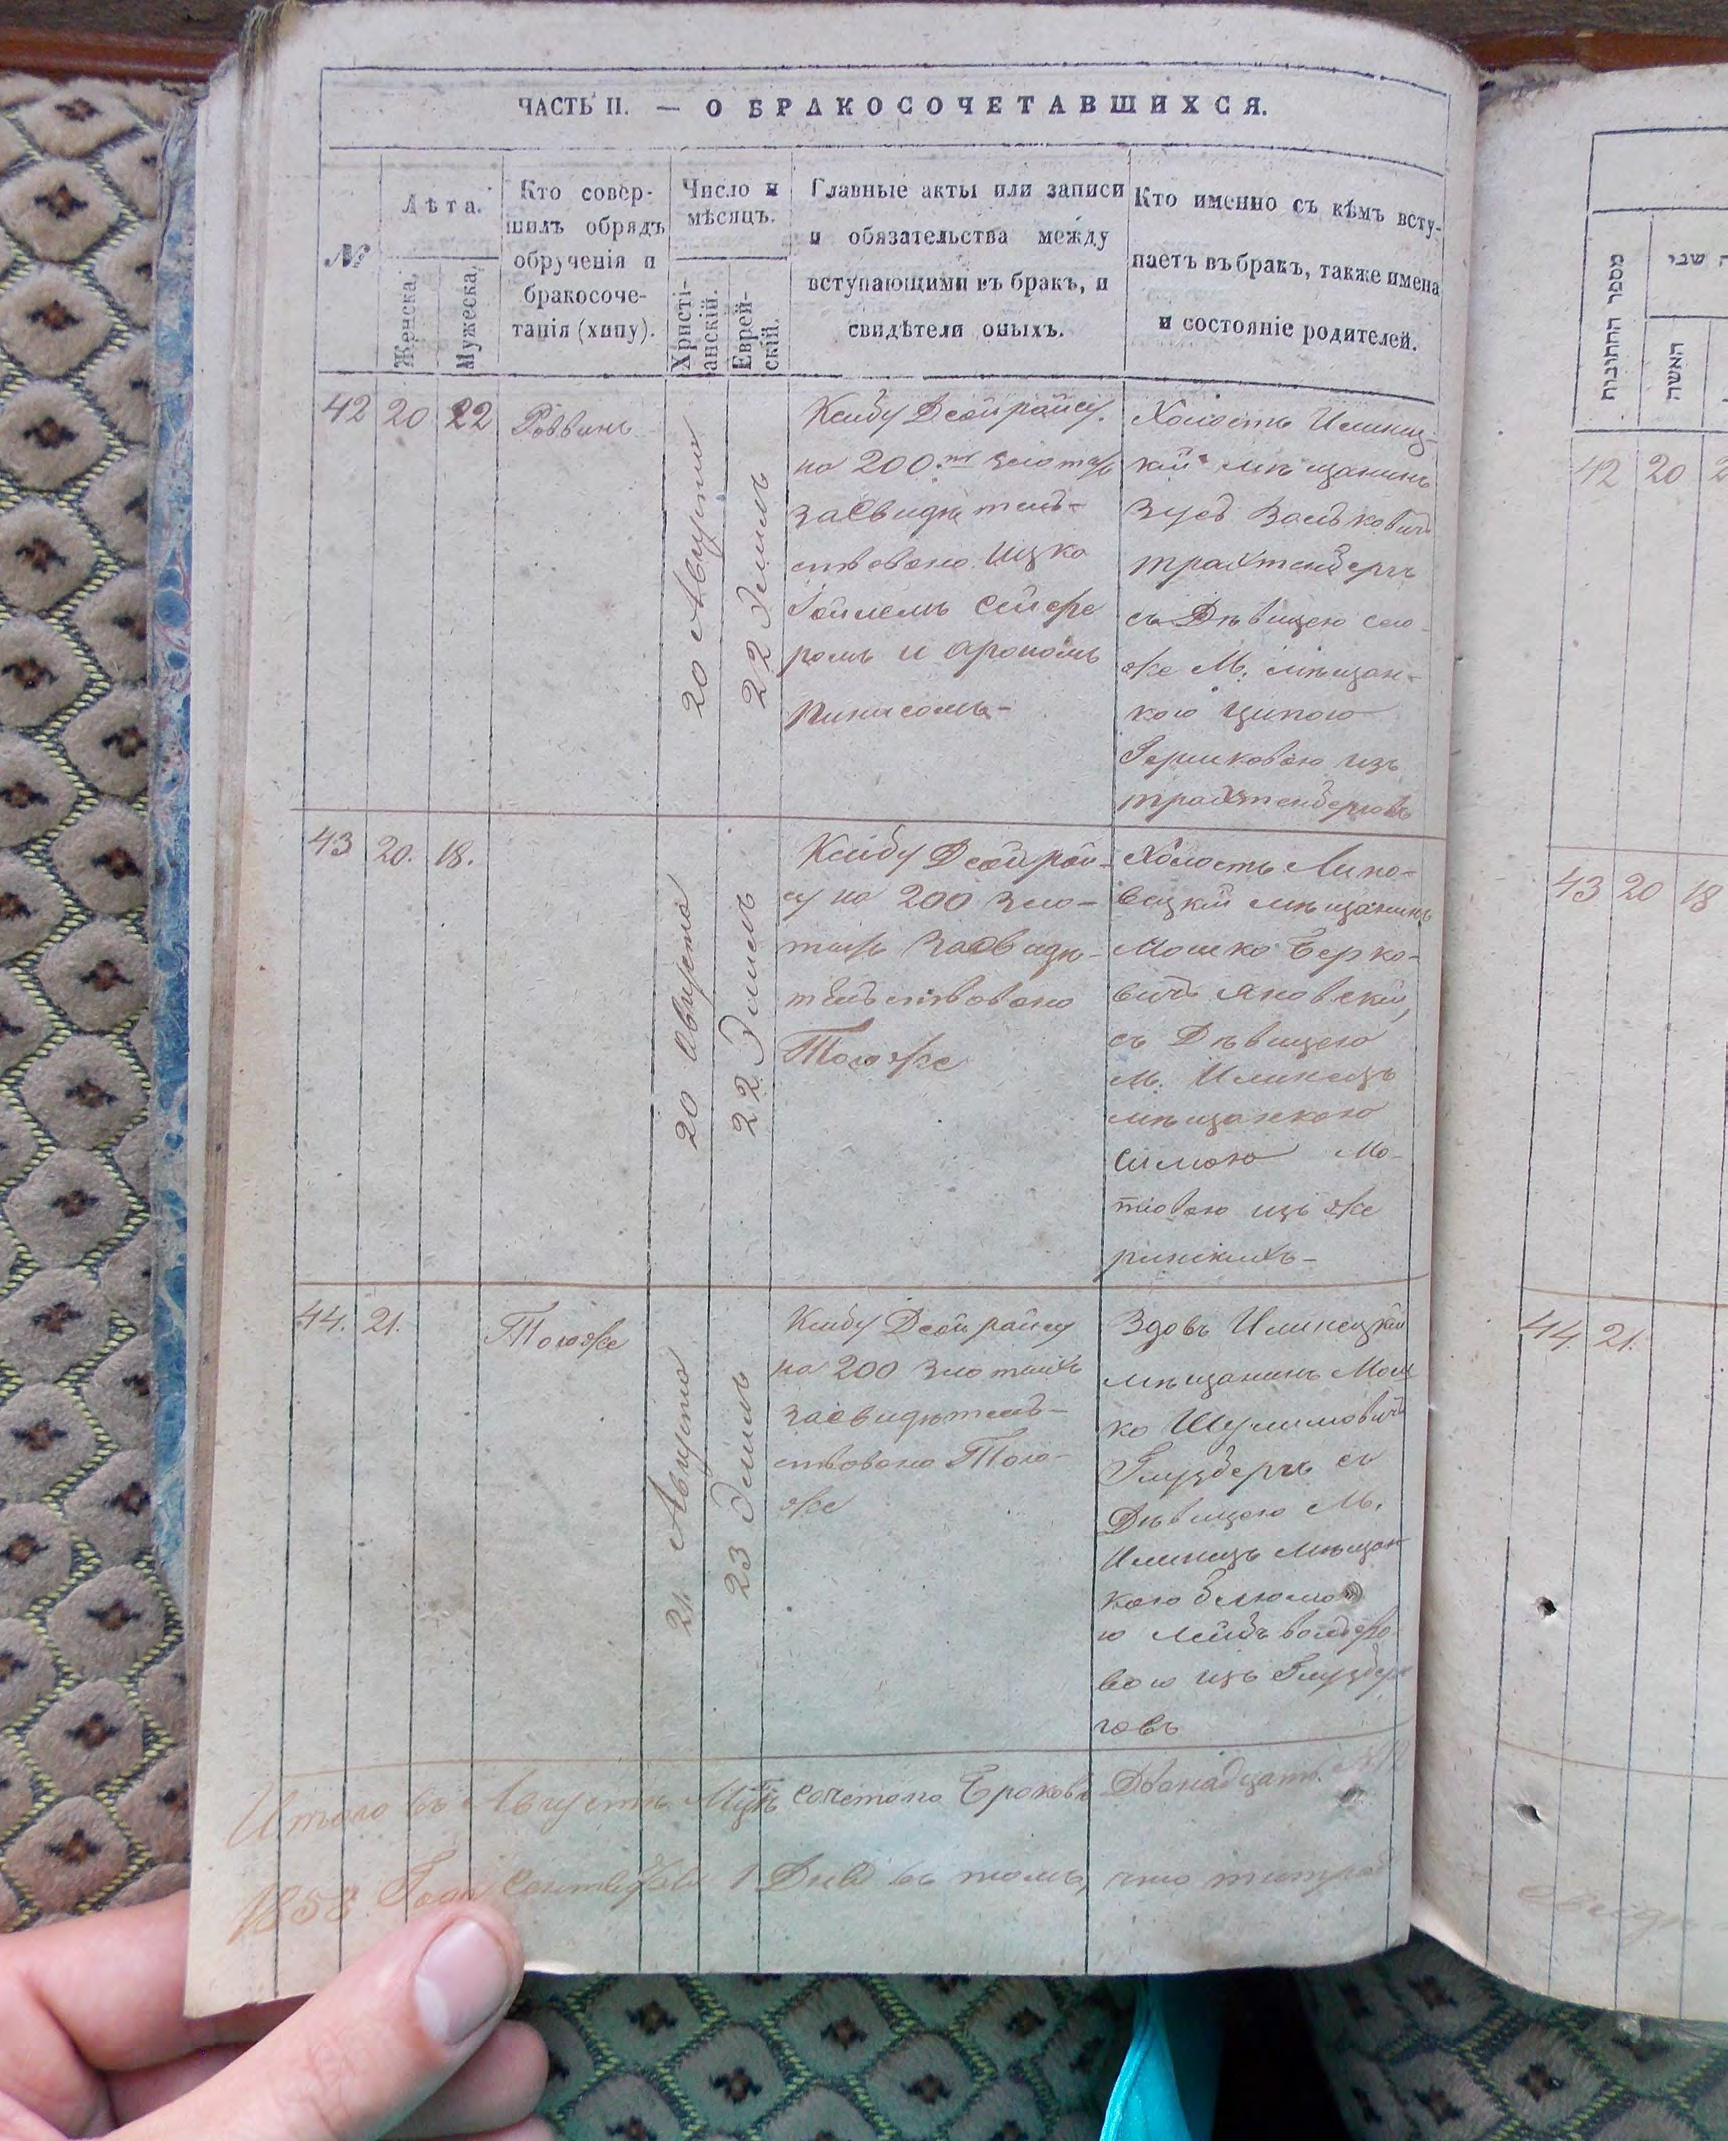 ЧАСТЬ II. — О БРАКОСОЧЕТАВШИХСЯ.
№
Лѣта.
Женска.
Мужеска.
Кто совер-
шилъ обрядъ
обрученія и
бракосоче-
танія (хипу).
Число и
мѣсяцъ.
Христі-
анскій.
Еврей-
скій.
Главные акты или записи
и обязательства между
вступающими въ бракъ, и
свидѣтели оныхъ.
Кто именно съ кѣмъ всту-
паетъ въ бракъ, также имена
и состояніе родителей.
42 20 22 Раввинъ
20 Августа
22 Элюль
Ксибу Деойрайсу
на 200 злотыхъ
засвидѣтель-
ствовано Ицко
Сейфе
ромъ и Арономъ
Пинисомъ-
Холостъ Илинец-
кій мѣщанинъ
Зусь Волькович
Трахтенбергъ
съ Дѣвицею сего
же М. мѣщан-
кою Ципою
Гершковою изъ
Трахтенберговъ
43 20. 18.
20 Августа
22 Элюль
Ксибу Деойрай-
су на 200 зло-
тыхъ засвидѣ-
тельствовано
Тоюже
Холостъ Липо-
вецкій мѣщанинъ
Мошко Берко-
вичъ Яновскій,
съ Дѣвицею
М. Илинецъ
мѣщанкою
Симою Мо-
тіовою изъ Же
ринскихъ-
44. 21. Тоюже
21 Августа
23 Элюль
Ксибу Деойрайсу
на 200 злотыхъ
засвидѣтель-
ствовано Тою-
же
Вдовъ Илинецкій
мѣщанинъ Мош
ко Шулимовичъ
Глузбергъ съ
Дѣвицею М.
Илинецъ мѣщан
кою Блюмо
ю Лейбъ Вольфо
вою изъ Глузбер
говъ
Итого въ Августѣ М-цѣ сочетано Браковъ Двѣнадцать
1858 Года Сентября 1 Дня въ томъ, что
מספר החתונות
האשה
42 20
43 20 18
44. 21.